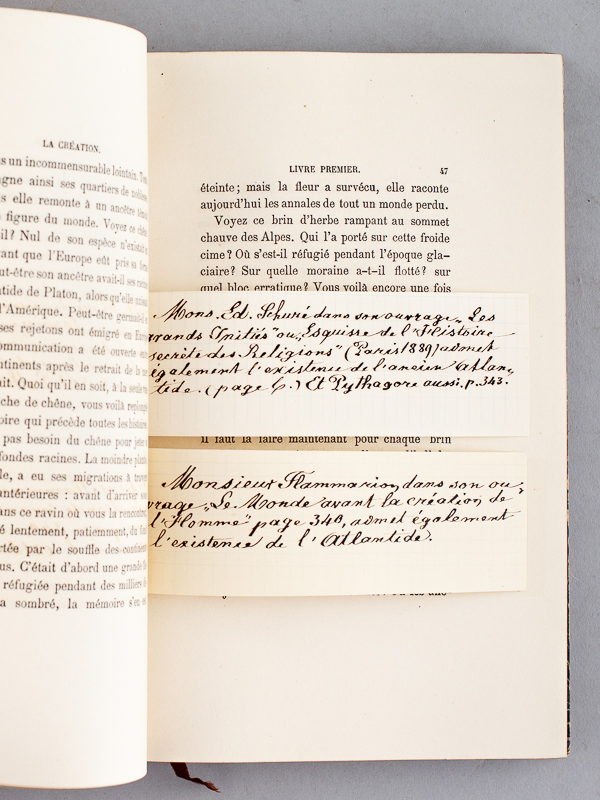 LA CRÉATION.
s un incommensurable lointain.
gne ainsi ses quartiers de
s elle remonte à un ancêtre
figure du monde. Voyez ce chêne
il? Nul de son espèce n'existait
vant que l'Europe eût pris sa forme
ut-être son ancêtre avait-il ses racines
ntide de Platon, alors qu'elle
l'Amérique. Peut-être germait-il
ses rejetons ont émigré en Europe
communication a été ouverte
ntinents après le retrait de la mer
ait. Quoi qu'il en soit, à la seule
che de chêne, vous voilà
oire qui précède toutes les histoires
pas besoin du chêne pour jeter
ofondes racines. La moindre plante
le, a eu ses migrations à travers
antérieures : avant d'arriver
ans ce ravin où vous la rencontrez
é lentement, patiemment, du
rtée par le souffle des continents
us. C'était d'abord une grande
réfugiée pendant des milliers de
a sombré, la mémoire s'en est
LIVRE PREMIER. 47
éteinte; mais la fleur a survécu, elle raconte
aujourd'hui les annales de tout un monde perdu.
Voyez ce brin d'herbe rampant au sommet
chauve des Alpes. Qui l'a porté sur cette froide
cime? Où s'est-il réfugié pendant l'époque gla-
ciaire? Sur quelle moraine a-t-il flotté? sur
quel bloc erratique? Vous voilà encore une fois
Mons. Ed. Schuré dans son ouvrage „Les
grands Initiés" ou „Esquisse de l'Histoire
secrète des Religions" (Paris 1889) admet
également l'existence de l'ancien Atlan„
tide. (page 6.) Et Pythagore aussi. p. 343.
Il faut la faire maintenant pour chaque brin
Monsieur Flammarion, dans son ou„
vrage „Le Monde avant la création de
l'Homme" page 340, admet également
l'existence de l'Atlantide.